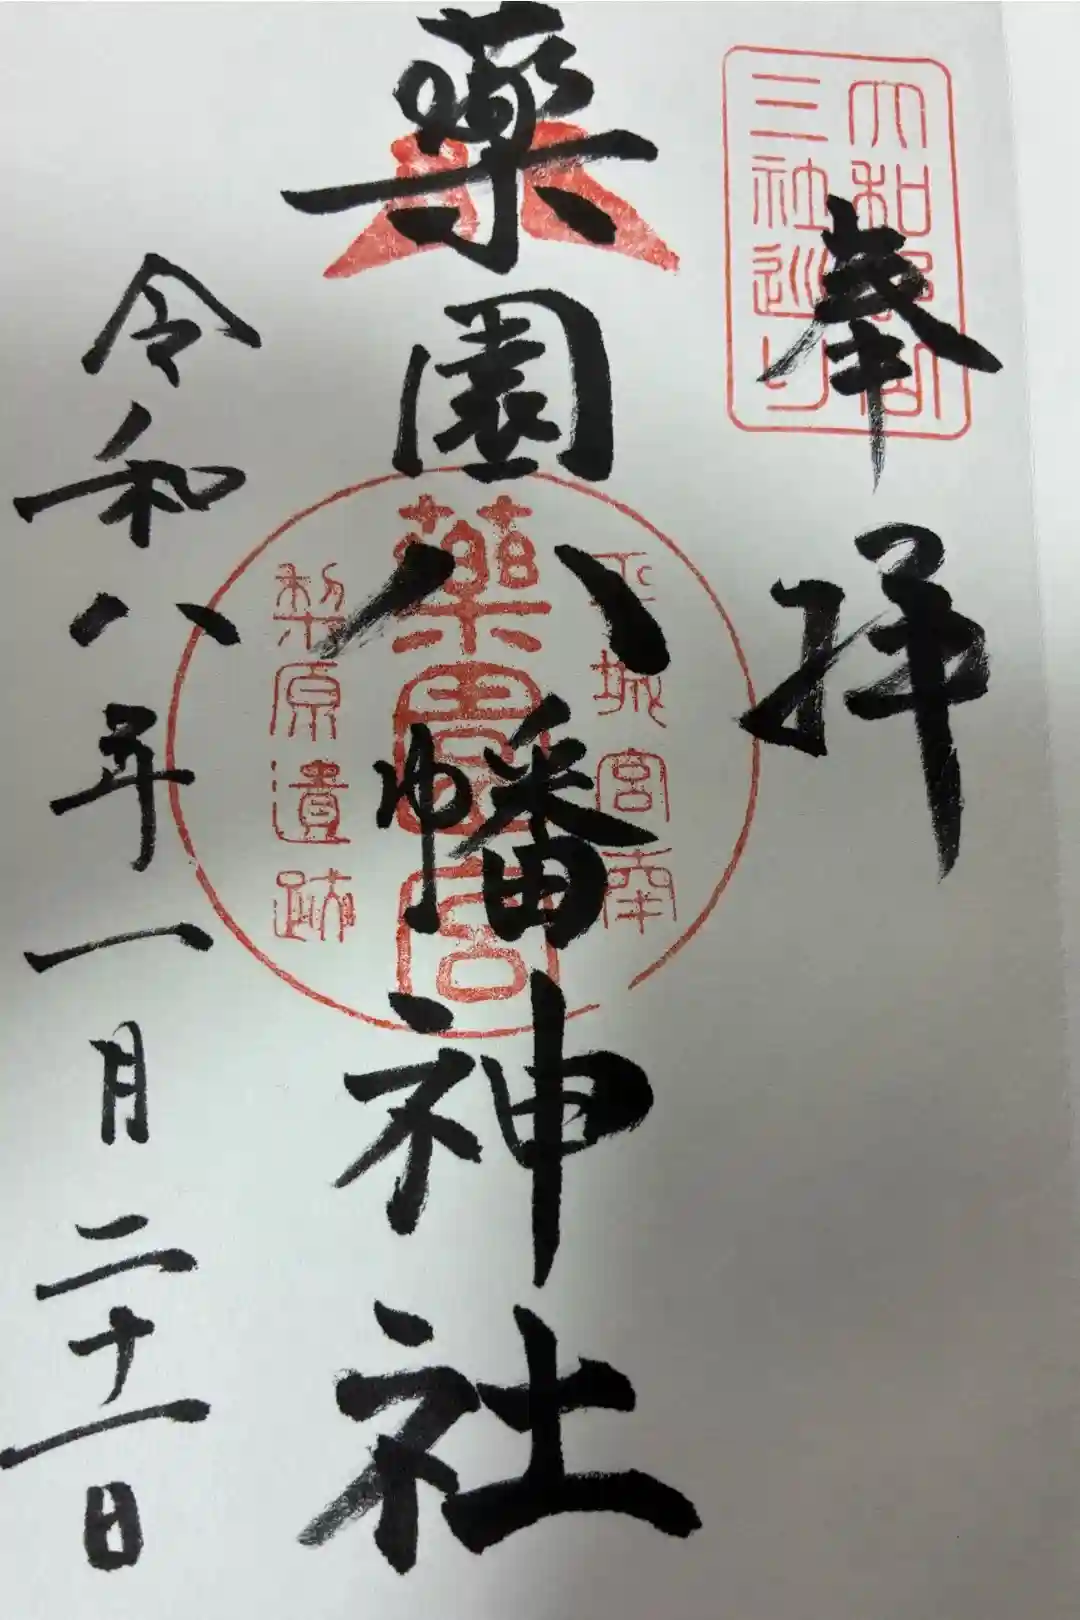 大和郡山
三社巡り
奉拝
藥園八幡神社
平城宮南
藥園宮
梨原遺跡
令和八年一月二十一日